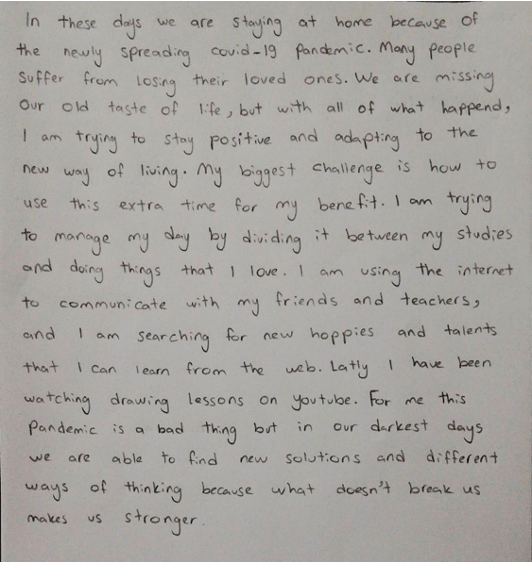 In these days we are staying at home because of
the newly spreading covid-19 pandemic. Many people
suffer from losing their loved ones. We are missing
our old taste of life, but with all of what happend,
I am trying to stay positive and adapting to the
new way of living. My biggest challenge is how to
use this extra time for my benefit. I am trying
to manage my day by dividing it between my studies
and doing things that I love. I am using the internet
to communicate with my friends and teachers,
and I am searching for new hoppies and talents
that I can learn from the web. Latly I have been
watching drawing lessons on youtube. For me this
pandemic is a bad thing but in our darkest days
we are able to find new solutions and different
ways of thinking because what doesn't break us
makes us stronger.